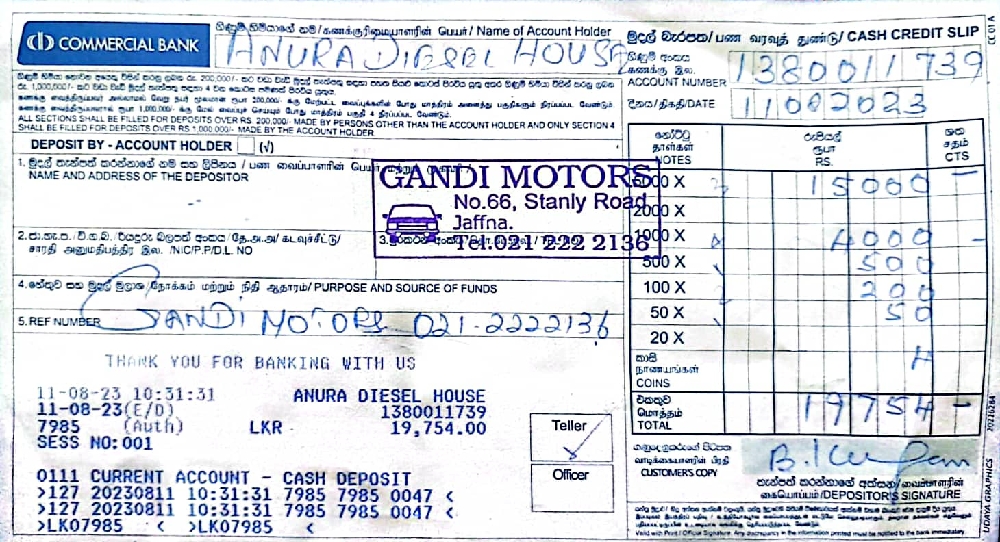 COMMERCIAL BANK
ගිණුම් හිමියාගේ නම/கணக்குரிமையாளரின் பெயர்/ Name of Account Holder
ANURA DIESEL HOUSE
මුදල් බැරපත/பண வரவுத் துண்டு/ CASH CREDIT SLIP
CC 01 A
ගිණුම් අංකය
கணக்கு இல.
ACCOUNT NUMBER
1380011739
දිනය/திகதி/DATE
11082023
ALL SECTIONS SHALL BE FILLED FOR DEPOSITS OVER RS. 200,000/- MADE BY PERSONS OTHER THAN THE ACCOUNT HOLDER AND ONLY SECTION 4
SHALL BE FILLED FOR DEPOSITS OVER RS 1,000,000/- MADE BY THE ACCOUNT HOLDER
DEPOSIT BY - ACCOUNT HOLDER (√)
1. මුදල් තැන්පත් කරන්නාගේ නම සහ ලිපිනය / பண வைப்பாளரின்
NAME AND ADDRESS OF THE DEPOSITOR
GANDI MOTORS
No.66, Stanly Road
Jaffna.
Tel:021 222 2136
/NIC/P.P/D.L. NO
4. හේතුව සහ මුදල් මූලාශ්‍ර/நோக்கம் மற்றும் நிதி ஆதாரம்/ PURPOSE AND SOURCE OF FUNDS
5. REF NUMBER
GANDI MOTORS 021-2222136
නෝට්ටු රුපියල් ශත
தாள்கள் ரூபா சதம்
NOTES RS. CTS
5000 X 15000 -
2000 X
1000 X 4000 -
500 X 500
100 X 200
50 X 50
20 X
කාසි
நாணயங்கள்
COINS 4
එකතුව
மொத்தம்
TOTAL 19754 -
THANK YOU FOR BANKING WITH US
11-08-23 10:31:31 ANURA DIESEL HOUSE
11-08-23(E/D) 1380011739
7985 (Auth) LKR 19,754.00
SESS NO:001
0111 CURRENT ACCOUNT - CASH DEPOSIT
>127 20230811 10:31:31 7985 7985 0047 <
>127 20230811 10:31:31 7985 7985 0047 <
>LK07985 < >LK07985 <
Teller
Officer
வாடிக்கையாளரின் பிரதி
CUSTOMER'S COPY
තැන්පත් කරන්නාගේ අත්සන/வைப்பாளரின்
கையொப்பம்/DEPOSITOR'S SIGNATURE
Valid with Print / Official Signature. Any discrepancy in the information printed must be notified to the bank immediately.
UDAYA GRAPHICS